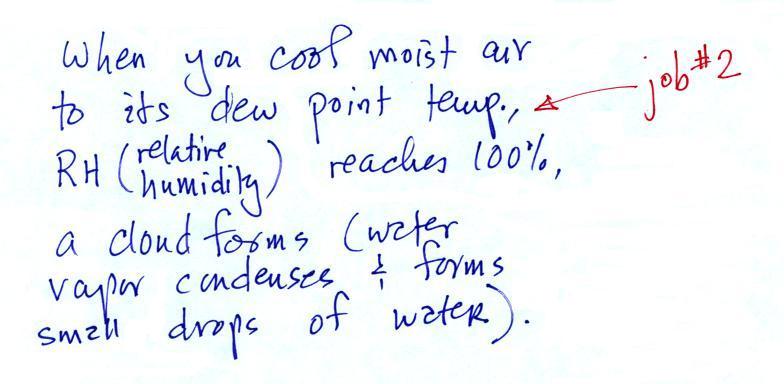 When you cool moist air
to its dew point temp., ← job #2
RH (relative humidity) reaches 100%,
a cloud forms (water
vapor condenses & forms
small drops of water).